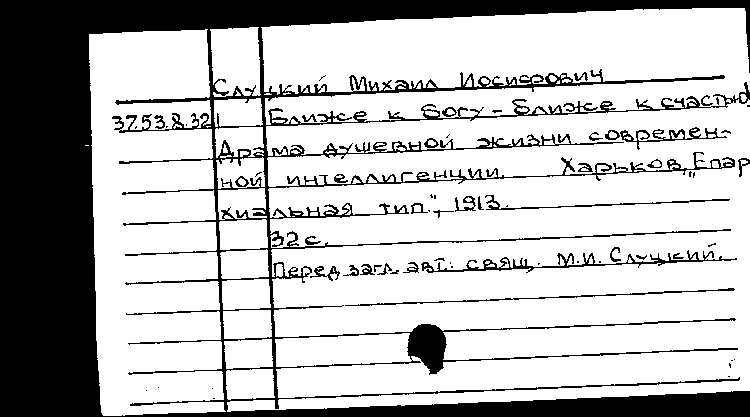 Слуцкий Михаил Иосифович
37.53.8.32 Ближе к богу - ближе к счастью
Драма душевной жизни современ-
ной интеллигенции. Харьков, „Епар
хиальная тип.", 1913.
32 с.
Перед загл. авт.: свящ. М.И. Слуцкий.